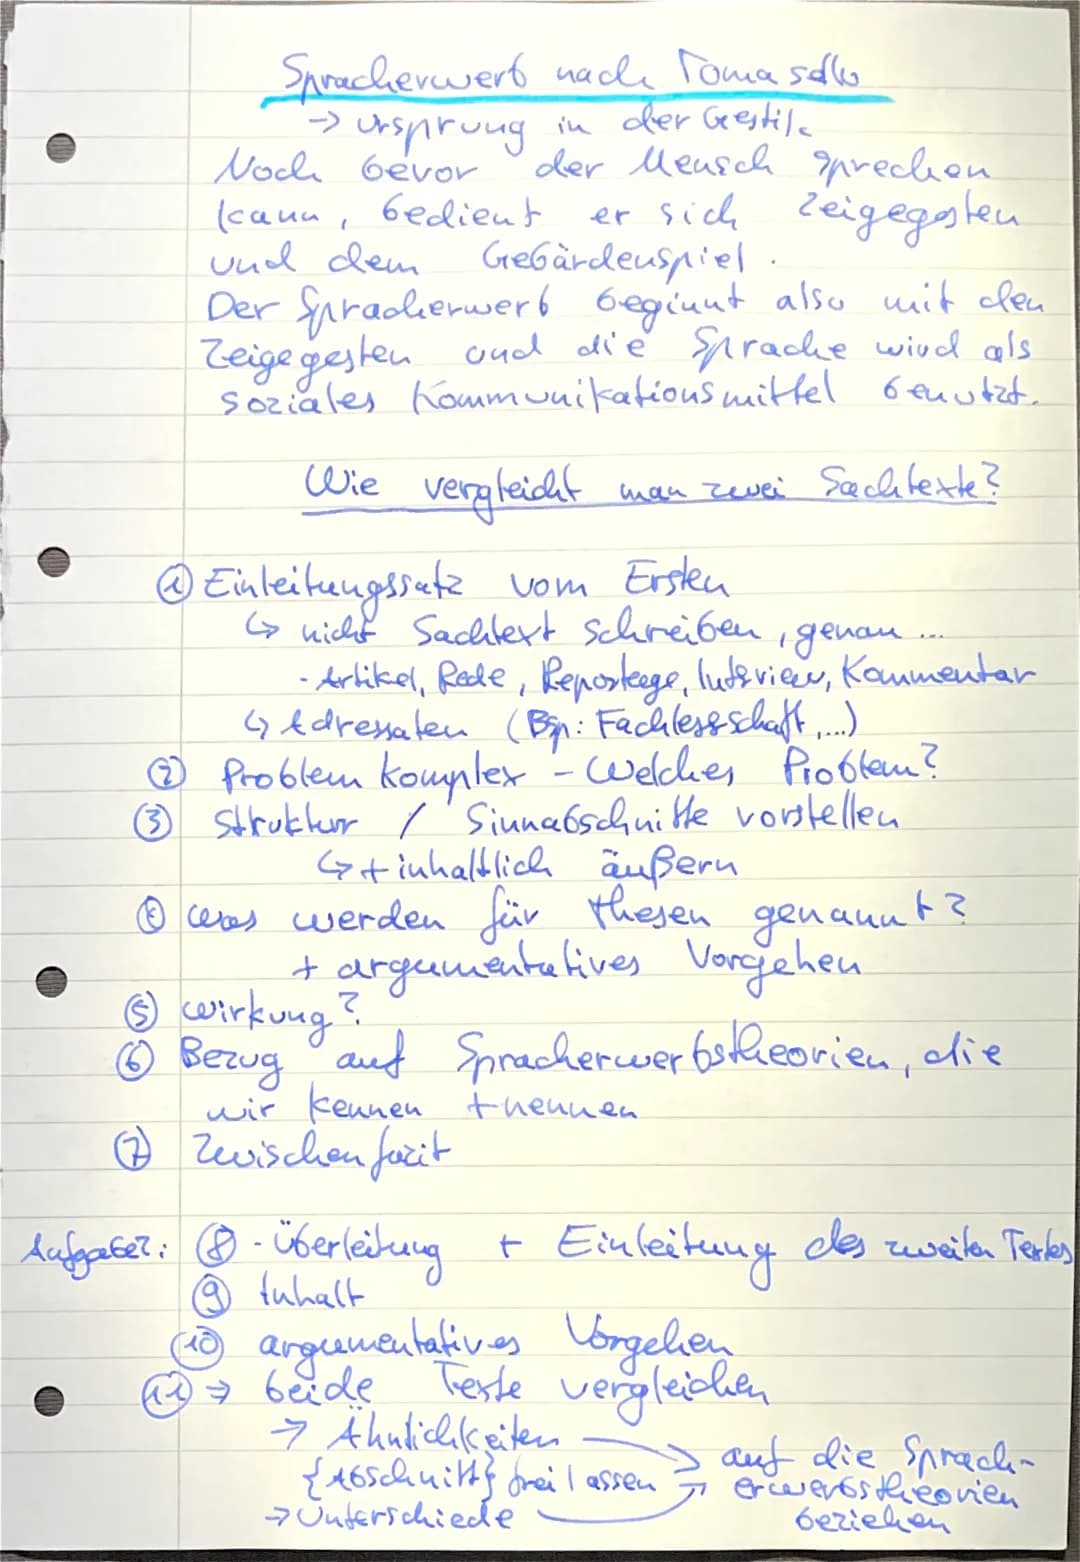 Spracherwerb nach Tomasello
→ Ursprung in der Gestik
Noch bevor der Mensch sprechen
kann, bedient er sich Zeigegesten
und dem Gebärdenspiel.
Der Spracherwerb beginnt also mit den
Zeigegesten und die Sprache wird als
soziales Kommunikationsmittel benutzt.
Wie vergleicht man zwei Sachtexte?
① Einleitungssatz vom Ersten
↳ nicht Sachtext schreiben, genau ...
- Artikel, Rede, Reportage, Interview, Kommentar
↳ Adressaten (Bsp: Fachleserschaft,...)
② Problemkomplex - Welches Problem?
③ Struktur / Sinnabschnitte vorstellen
↳ + inhaltlich äußern
④ was werden für Thesen genannt?
+ argumentatives Vorgehen
⑤ Wirkung?
⑥ Bezug auf Spracherwerbstheorien, die
wir kennen + nennen
⑦ Zwischenfazit
Aufgabe 2: ⑧ - Überleitung + Einleitung des zweiten Textes
⑨ Inhalt
⑩ argumentatives Vorgehen
⑪ → beide Texte vergleichen
→ Ähnlichkeiten
{Abschnitt} frei lassen
→ Unterschiede
→ auf die Sprach-
erwerbstheorien
beziehen